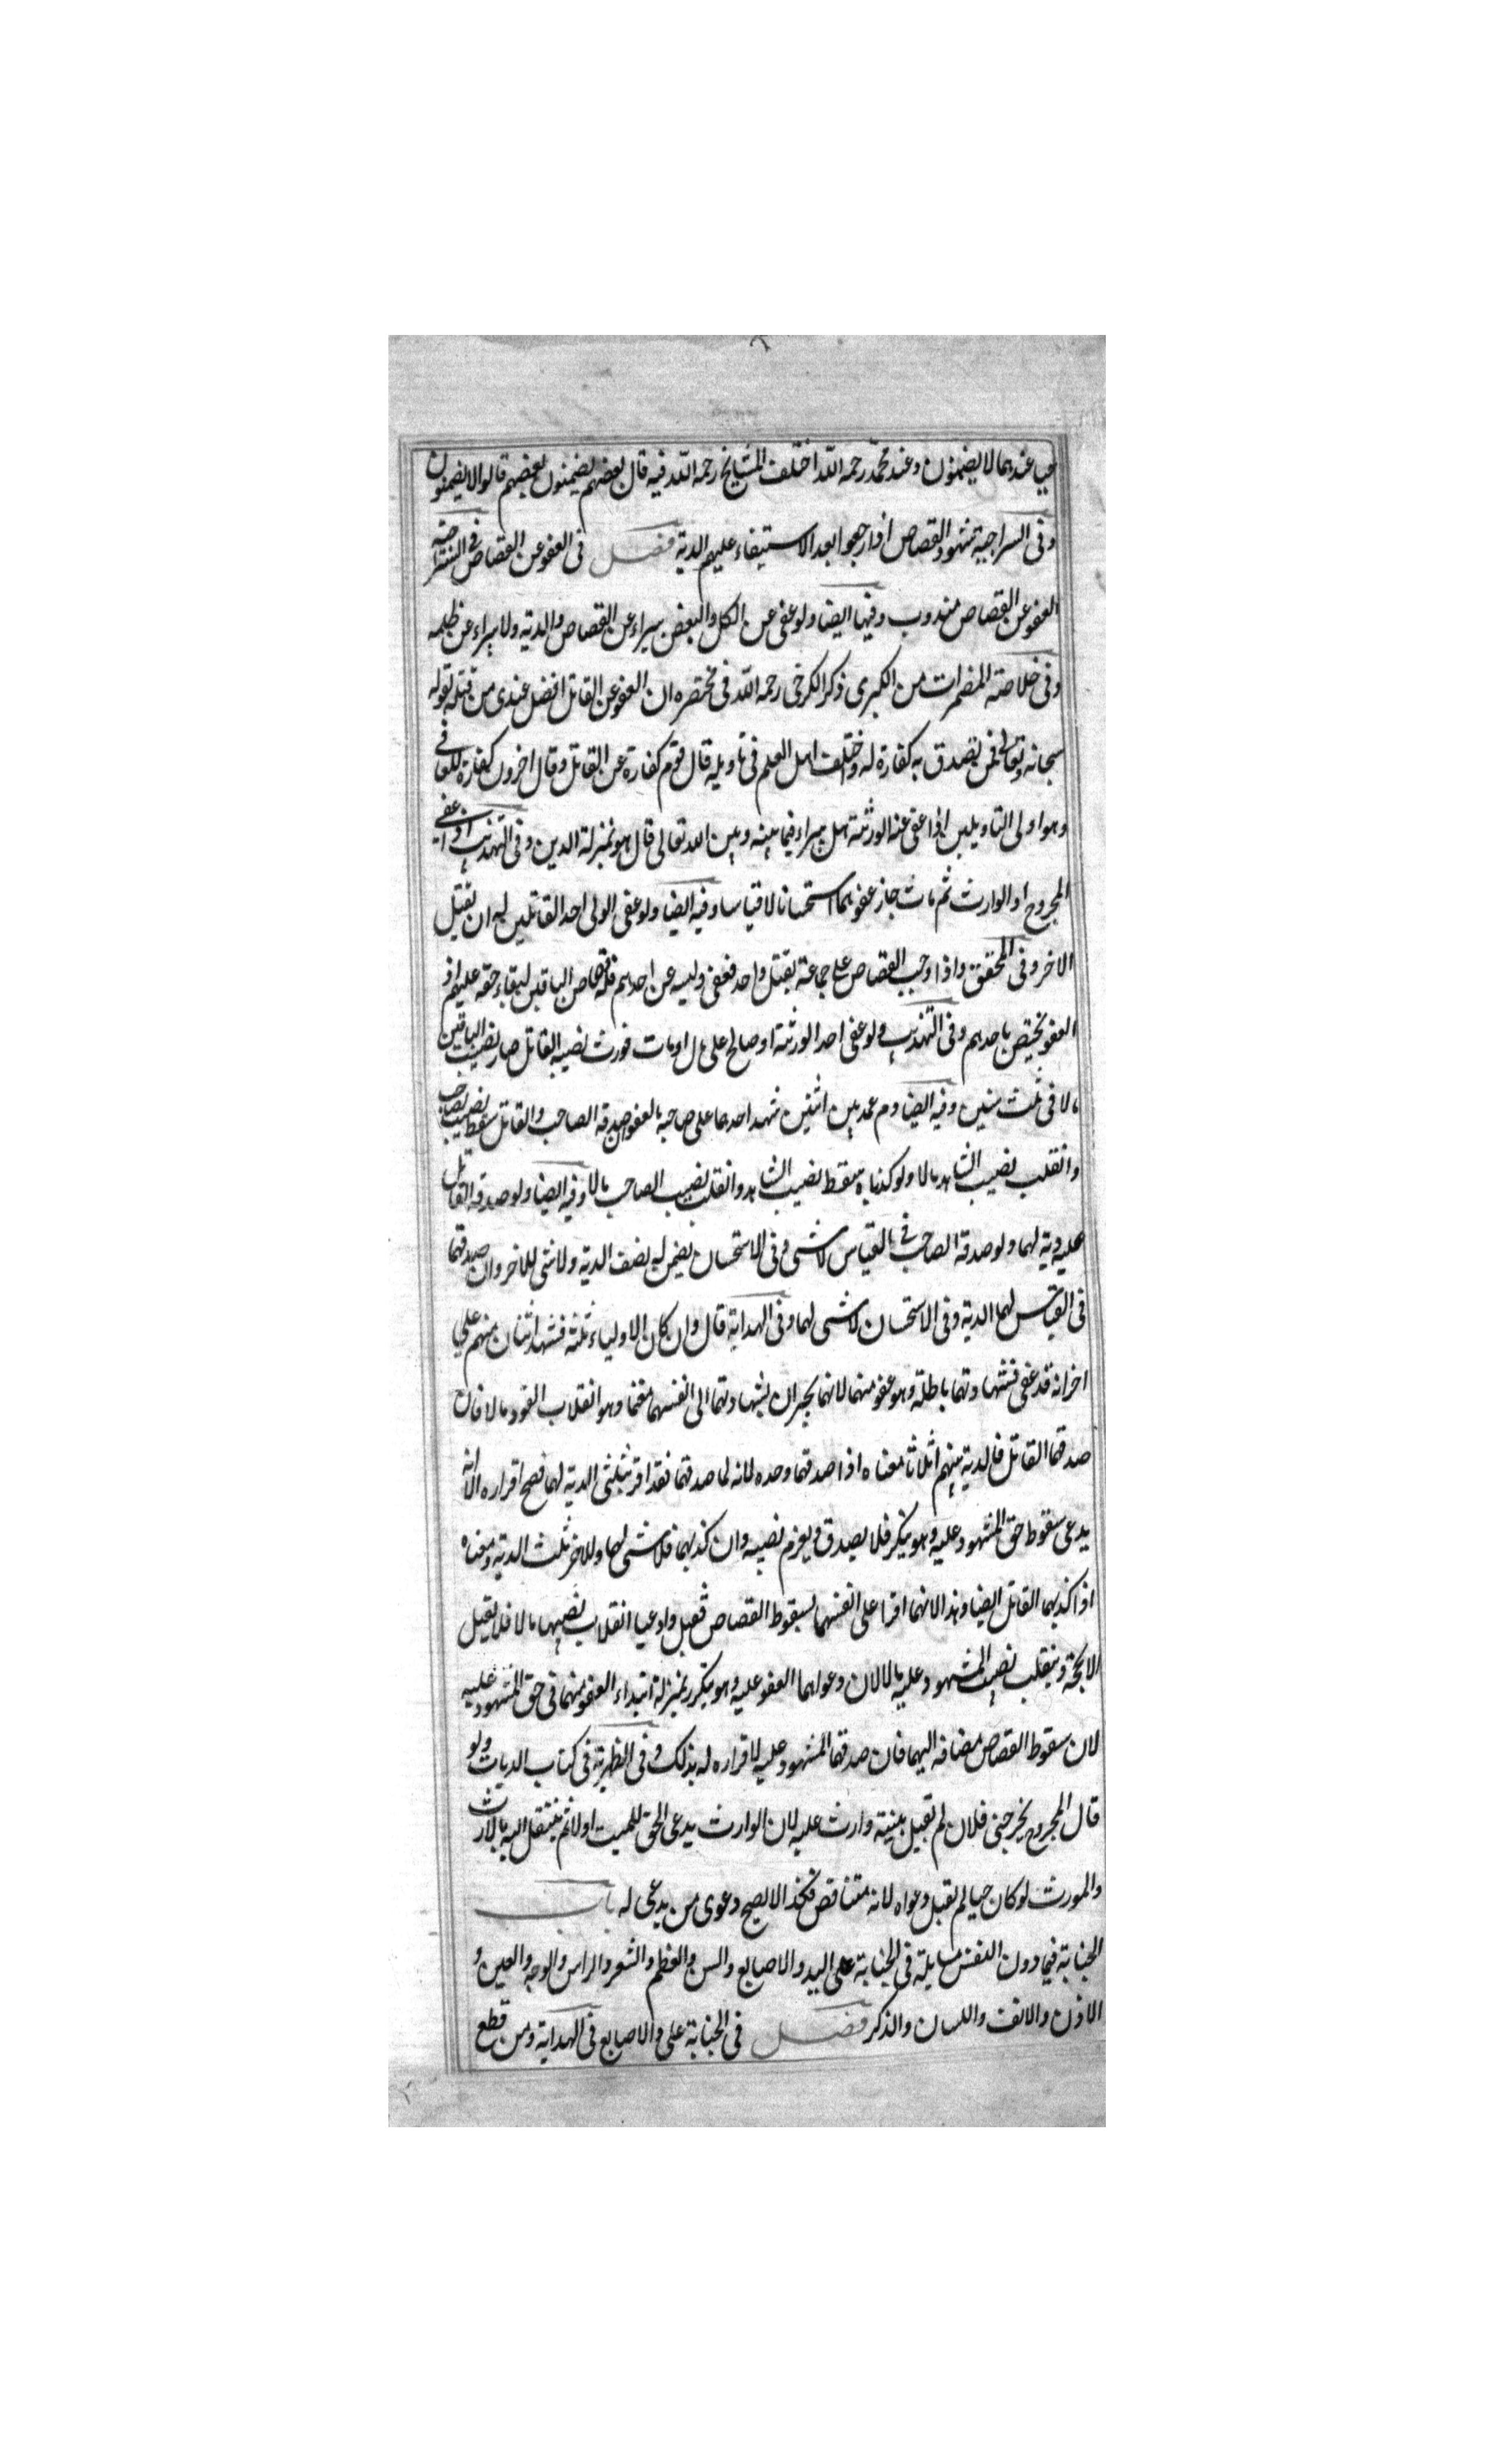 عندهما لا يضمنون وعند محمد رحمه الله اختلف المشايخ رحمه الله فيه قال بعضهم يضمنون بعضهم قالوا لا يضمنون
وفى السراجية شهود القصاص اذا رجعوا بعد الاستيفاء عليهم الدية فصل فى العفو عن القصاص فى
العفو عن القصاص مندوب وفيها ايضا ولو عفى عن الكل والبعض يبراء عن القصاص والدية ولا يبراء عن ظلمه
وفى خلاصة المضمرات من الكبرى ذكر الكرخى رحمه الله فى مختصره ان العفو عن القاتل افضل عندى من قتله لقوله
سبحانه وتعالى فمن تصدق به كفارة له واختلف اهل العلم فى تاويله قال قوم كفارة عن القاتل وقال اخرون كفارة للعافى
وهو اولى التاويلين اذا عفى عنه الورثة هل يبراء فيما بينه وبين الله تعالى قال هو بمنزلة الدين وفى التهذيب اذا عفى
المجروح او الوارث ثم مات جاز عفوهما استحسانا لا قياسا وفيه ايضا ولو عفى الولى احد القاتلين له ان يقتل
الاخر وفى المحقق واذا وجب القصاص على جماعة بقتل واحد فعفى وليه عن احدهم فله قصاص الباقين لبقاء حقه عليهم اذ
العفو يختص باحدهم وفى التهذيب ولو عفى احد الورثة او صالح على مال او مات فورث نصيبه القاتل صار نصيب الباقين
مالا فى ثلث سنين وفيه ايضا دم عمد بين اثنين شهد احدهما على صاحبه بالعفو صدقه الصاحب والقاتل سقط نصيب الصاحب
وانقلب نصيب الشاهد مالا ولو كذباه سقط نصيب الشاهد وانقلب نصيب الصاحب مالا وفيه ايضا ولو صدقه القاتل
عليه دية لهما ولو صدقه الصاحب فى القياس لا شى وفى الاستحسان يضمن له نصف الدية ولا شى للاخر وان صدقهما
فى القياس لهما الدية وفى الاستحسان لا شى لهما وفى الهداية قال وان كان الاولياء ثلثة فشهد اثنان منهم على
اخر انه قد عفى فشهادتهما باطلة وهو عفو منهما لانهما يجران بشهادتهما الى انفسهما مغنما وهو انقلاب القود مالا فان
صدقهما القاتل فالدية بينهم اثلاثا معناه اذا صدقهما وحده لانه لما صدقهما فقد اقر بثلثى الدية لهما فصح اقراره الا انه
يدعى سقوط حق المشهود عليه وهو ينكر فلا يصدق ويغرم نصيبه وان كذبهما فلا شى لهما وللاخر ثلث الدية ومعناه
اذا كذبهما القاتل ايضا وهذا لانهما اقرا على انفسهما بسقوط القصاص فقبل وادعيا انقلاب نصيبهما مالا فلا يقبل
الا بحجة وينقلب نصيب المشهود عليه مالا لان دعواهما العفو عليه وهو ينكر بمنزلة ابتداء العفو منهما فى حق المشهود عليه
لان سقوط القصاص مضافة اليهما فان صدقهما المشهود عليه لاقراره له بذلك وفى الظهيرية فى كتاب الديات ولو
قال المجروح لم يجرحنى فلان لم تقبل بينة وارث عليه لان الوارث يدعى الحق للميت اولا ثم ينتقل اليه بالارث
والمورث لو كان حيا لم تقبل دعواه لانه متناقض فكذا لا يصح دعوى من يدعى له باب
الجناية فيما دون النفس مسايلة فى الجناية على اليد والاصابع والسن والعظم والشعر والراس والوجه والعين و
الاذن والانف واللسان والذكر فصل فى الجناية على والاصابع فى الهداية ومن قطع